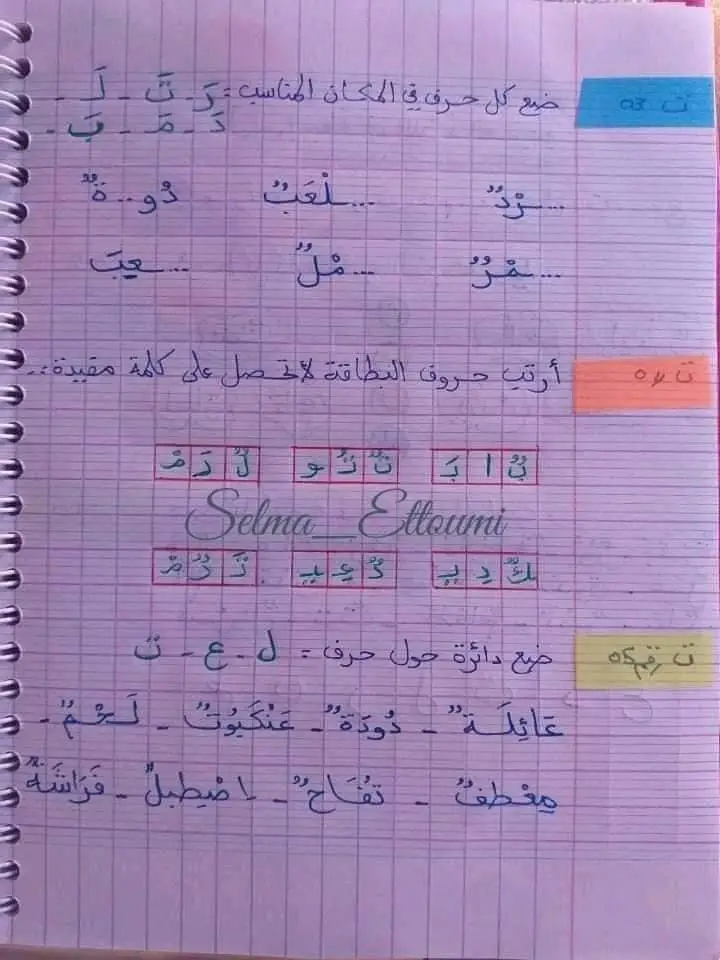 ت 03 ضع كل حرف في المكان المناسب: دَ - تَ - لَ -
دَ - مَ - بَ -
...رْدٌ ...لْعَبٌ دُو...ةٌ
...مْرٌ ...مْلٌ ...عِبَ
ت 04 أرتب حروف البطاقة لأتحصل على كلمة مفيدة:
بٌ ا بَ تٌ تُ و لٌ رَ مْ
Selma_Ettoumi
كٌ دِ يـ دٌ عِ يـ
ت رقم 05 ضع دائرة حول حرف: ل - ع - ت
عَائِلَةٌ - دُودَةٌ - عَنْكَبُوتٌ - لَحْمٌ -
مِعْطفٌ - تفُّاحٌ - اصْطبلٌ - فَرَاشَةٌ